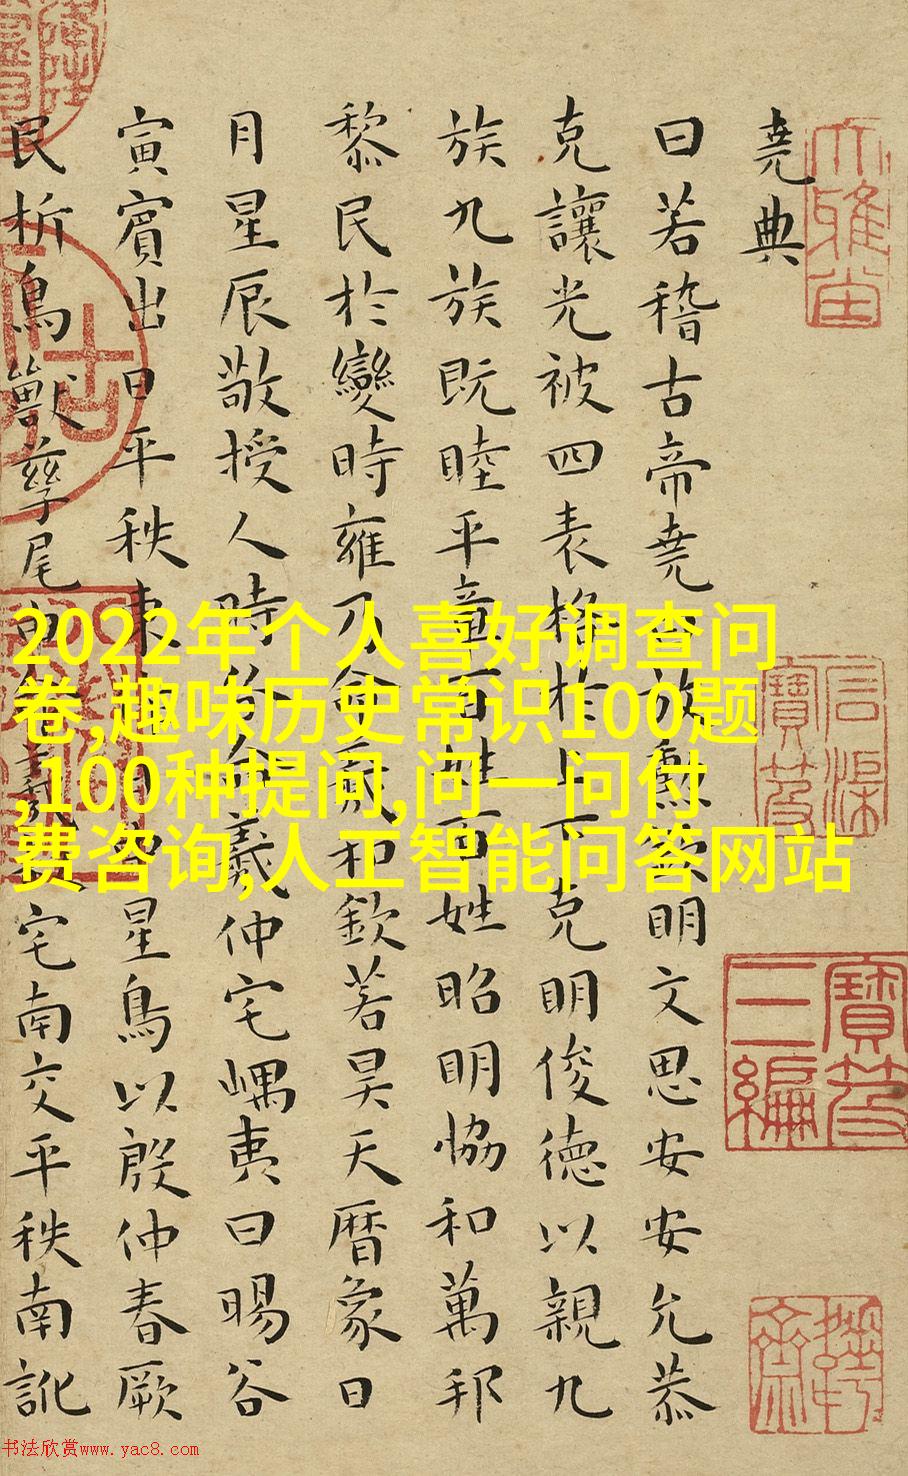 堯典
曰若稽古帝堯曰放勳欽明文思安安允恭
克讓光被四表格於上下克明俊德以親九
族九族既睦平章百姓百姓昭明恊和萬邦
黎民於變時雍乃命羲和欽若昊天曆象日
月星辰敬授人時分命羲仲宅嵎夷曰暘谷
寅賓出日平秩東作日中星鳥以殷仲春厥
民析鳥獸孳尾申命羲叔宅南交平秩南訛
2022年个人喜好调查问
卷,趣味历史常识100题
,100种提问,问一问付
费咨询,人工智能问答网站
寶笈
三編
书法欣赏www.yac8.com